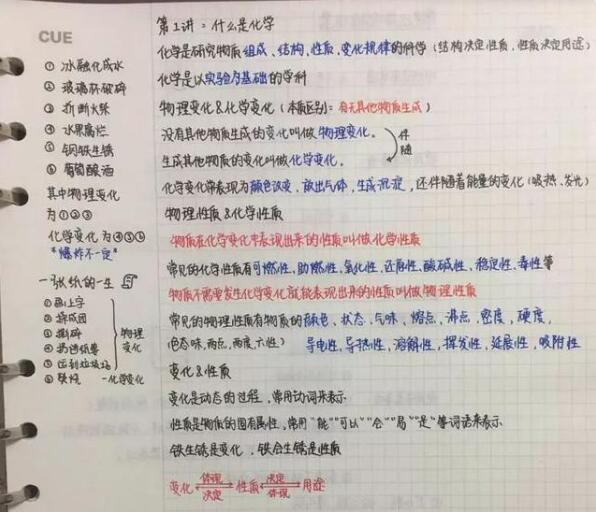 CUE
① 冰融化成水
② 玻璃杯破碎
③ 折断火柴
④ 水果腐烂
⑤ 钢铁生锈
⑥ 葡萄酿酒
其中物理变化
为①②③
化学变化为④⑤⑥
"爆炸不一定"
一张纸的一生
① 画上字
② 揉成团
③ 撕碎
④ 扔进纸篓
⑤ 运到垃圾站
物理
变化
⑥ 焚烧 —化学变化
第1讲：什么是化学
化学是研究物质组成、结构、性质、变化规律的科学（结构决定性质，性质决定用途）
化学是以实验为基础的学科
物理变化&化学变化（本质区别：有无其他物质生成）
没有其他物质生成的变化叫做物理变化。
伴
随
生成其他物质的变化叫做化学变化。
化学变化常表现为颜色改变、放出气体、生成沉淀，还伴随着能量的变化（吸热、发光）
物理性质&化学性质
物质在化学变化中表现出来的性质叫做化学性质
常见的化学性质有可燃性，助燃性，氧化性，还原性，酸碱性，稳定性，毒性等
物质不需要发生化学变化就能表现出来的性质叫做物理性质
常见的物理性质有物质的颜色、状态、气味、熔点、沸点、密度、硬度，
（色态味，两点，两度，六性） 导电性，导热性，溶解性，挥发性，延展性，吸附性
变化&性质
变化是动态的过程，常用动词来表示
性质是物质的固有属性，常用"能""可以""会""易""是"等词语来表示
铁生锈是变化，铁会生锈是性质
变化 体现 决定 性质 决定 体现 用途